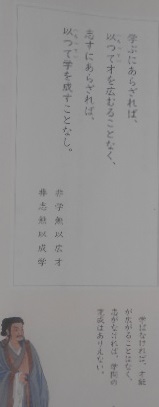 学ぶにあらざれば、
以つて才を広むることなく、
志すにあらざれば、
以つて学を成すことなし。
非学無以広才
非志無以成学
学ばなければ、才能
が広がることはなく、
志がなければ、学問の
完成はありえない。